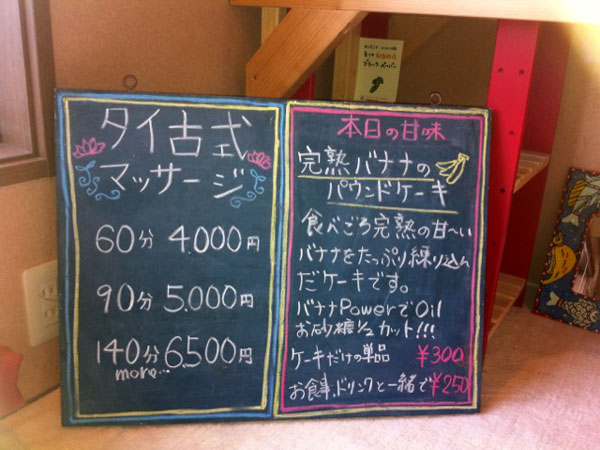 タイ古式
マッサージ
60分 4000円
90分 5,000円
140分 6500円
more...
本日の甘味
完熟バナナの
パウンドケーキ
食べごろ完熟の甘〜い
バナナをたっぷり練り込ん
だケーキです。
バナナPowerでOil
お砂糖1/2カット!!!
ケーキだけの単品 ¥300
お食事、ドリンクと一緒で¥250